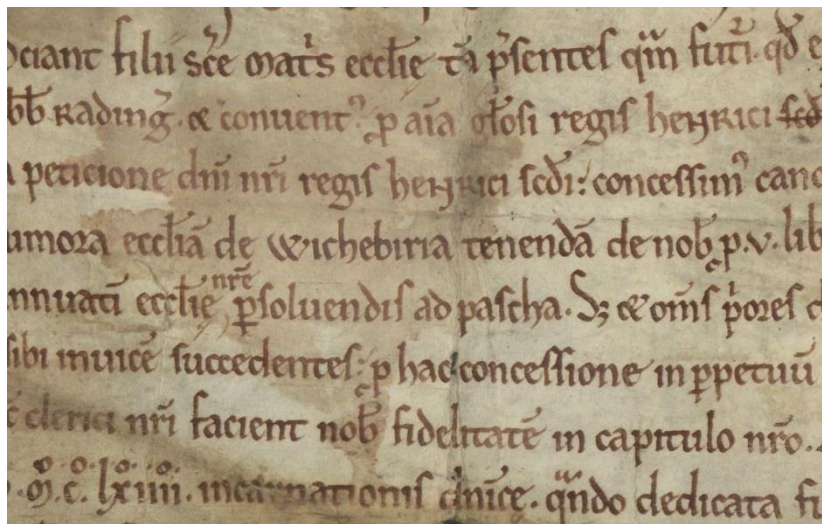 ociant filii sc̄e mat̓s eccl̄ie tā p̓sentes qͣm fut̓i. qđ e
bb̄ Rading̓. & conuent᷒. ꝓ aīa gl̄osi regis henrici scđ
peticione dn̄i nr̄i regis henrici scđi: concessim᷒ cano
umora eccl̄iā de Wichebiria tenendā de nob̄ ꝓ .v. lib
nnuatī eccl̄ie nr̄e ꝑsoluendis ad pascha. Sꝫ & om̄s p̓ores
sibi inuicē succedentes: ꝓ hac concessione in ꝑpetuū
clerici nr̄i facient nob̄ fidelitatē in capitulo nr̄o.
.ºM.ºc. lxiiii. incarnationis dn̄ice. qͣndo dedicata fu